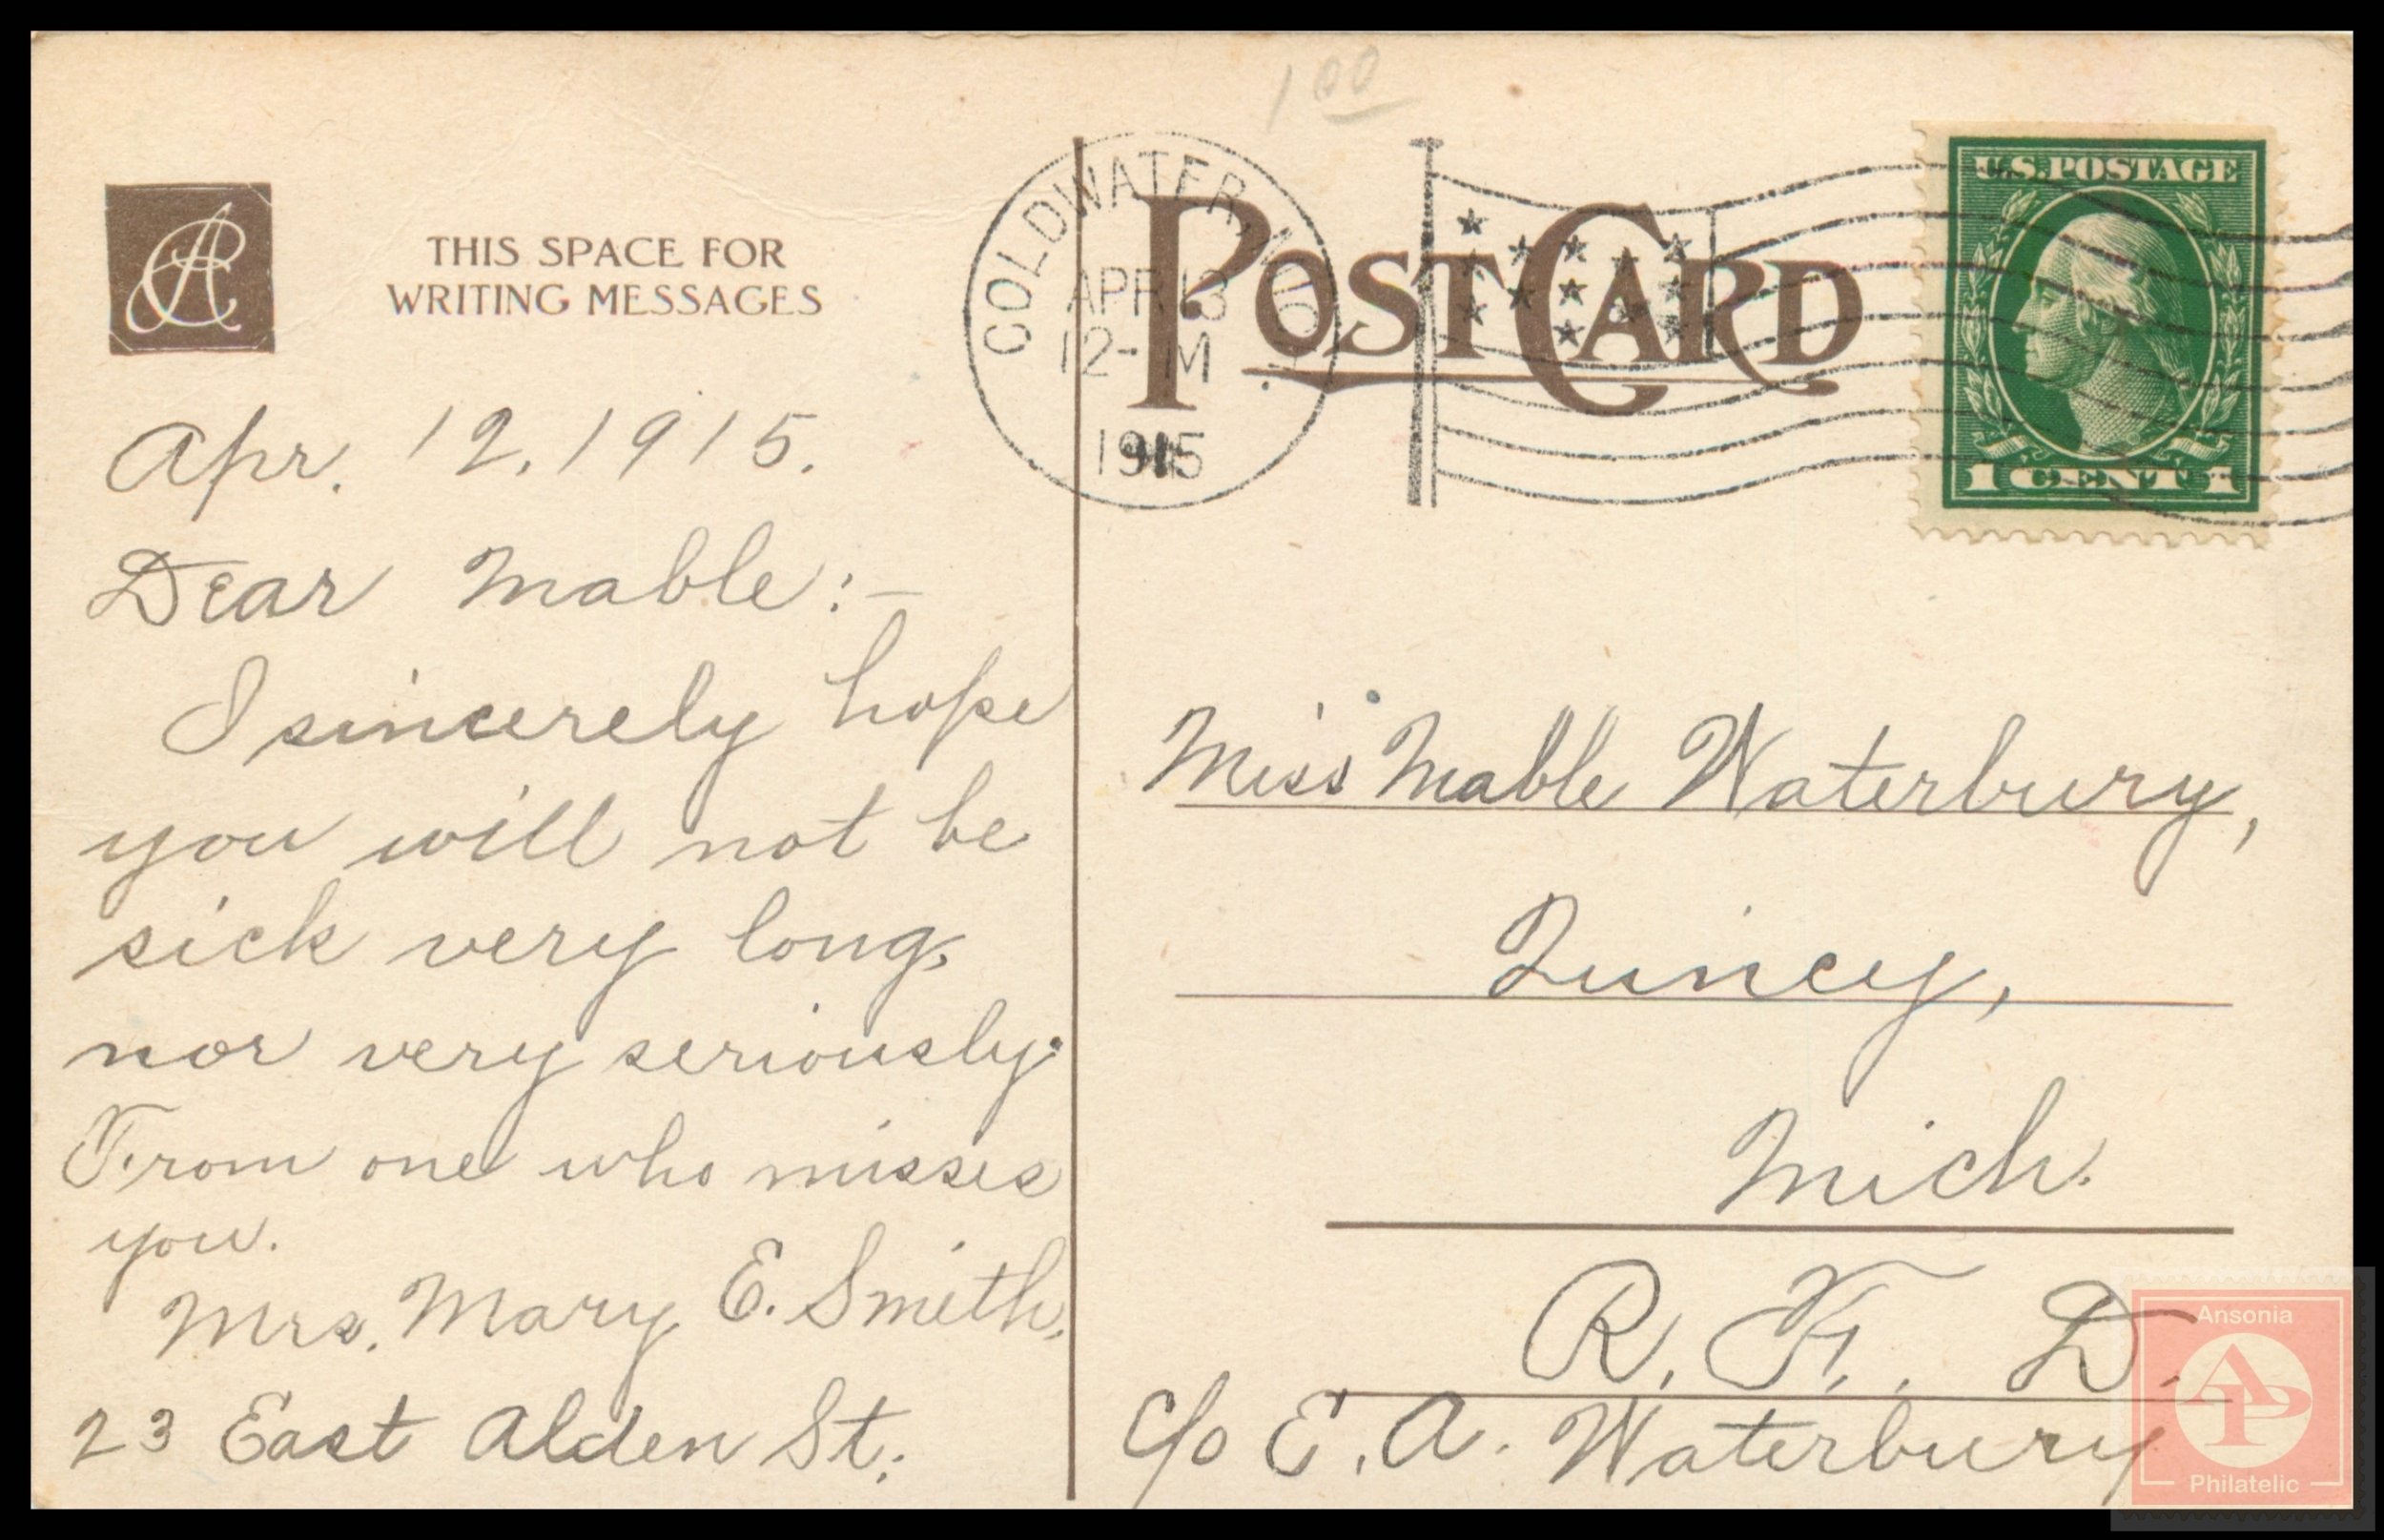 1 00
THIS SPACE FOR
WRITING MESSAGES
POST CARD
COLDWATER, MICH.
APR 13
12- M
1915
U.S. POSTAGE
1 CENT 1
Apr. 12, 1915.
Dear Mable:-
I sincerely hope
you will not be
sick very long,
nor very seriously.
From one who misses
you.
Mrs. Mary E. Smith,
23 East Alden St.
Miss Mable Waterbury,
Quincy,
Mich.
R. F. D.
c/o E. A. Waterbury
Ansonia
AP
Philatelic